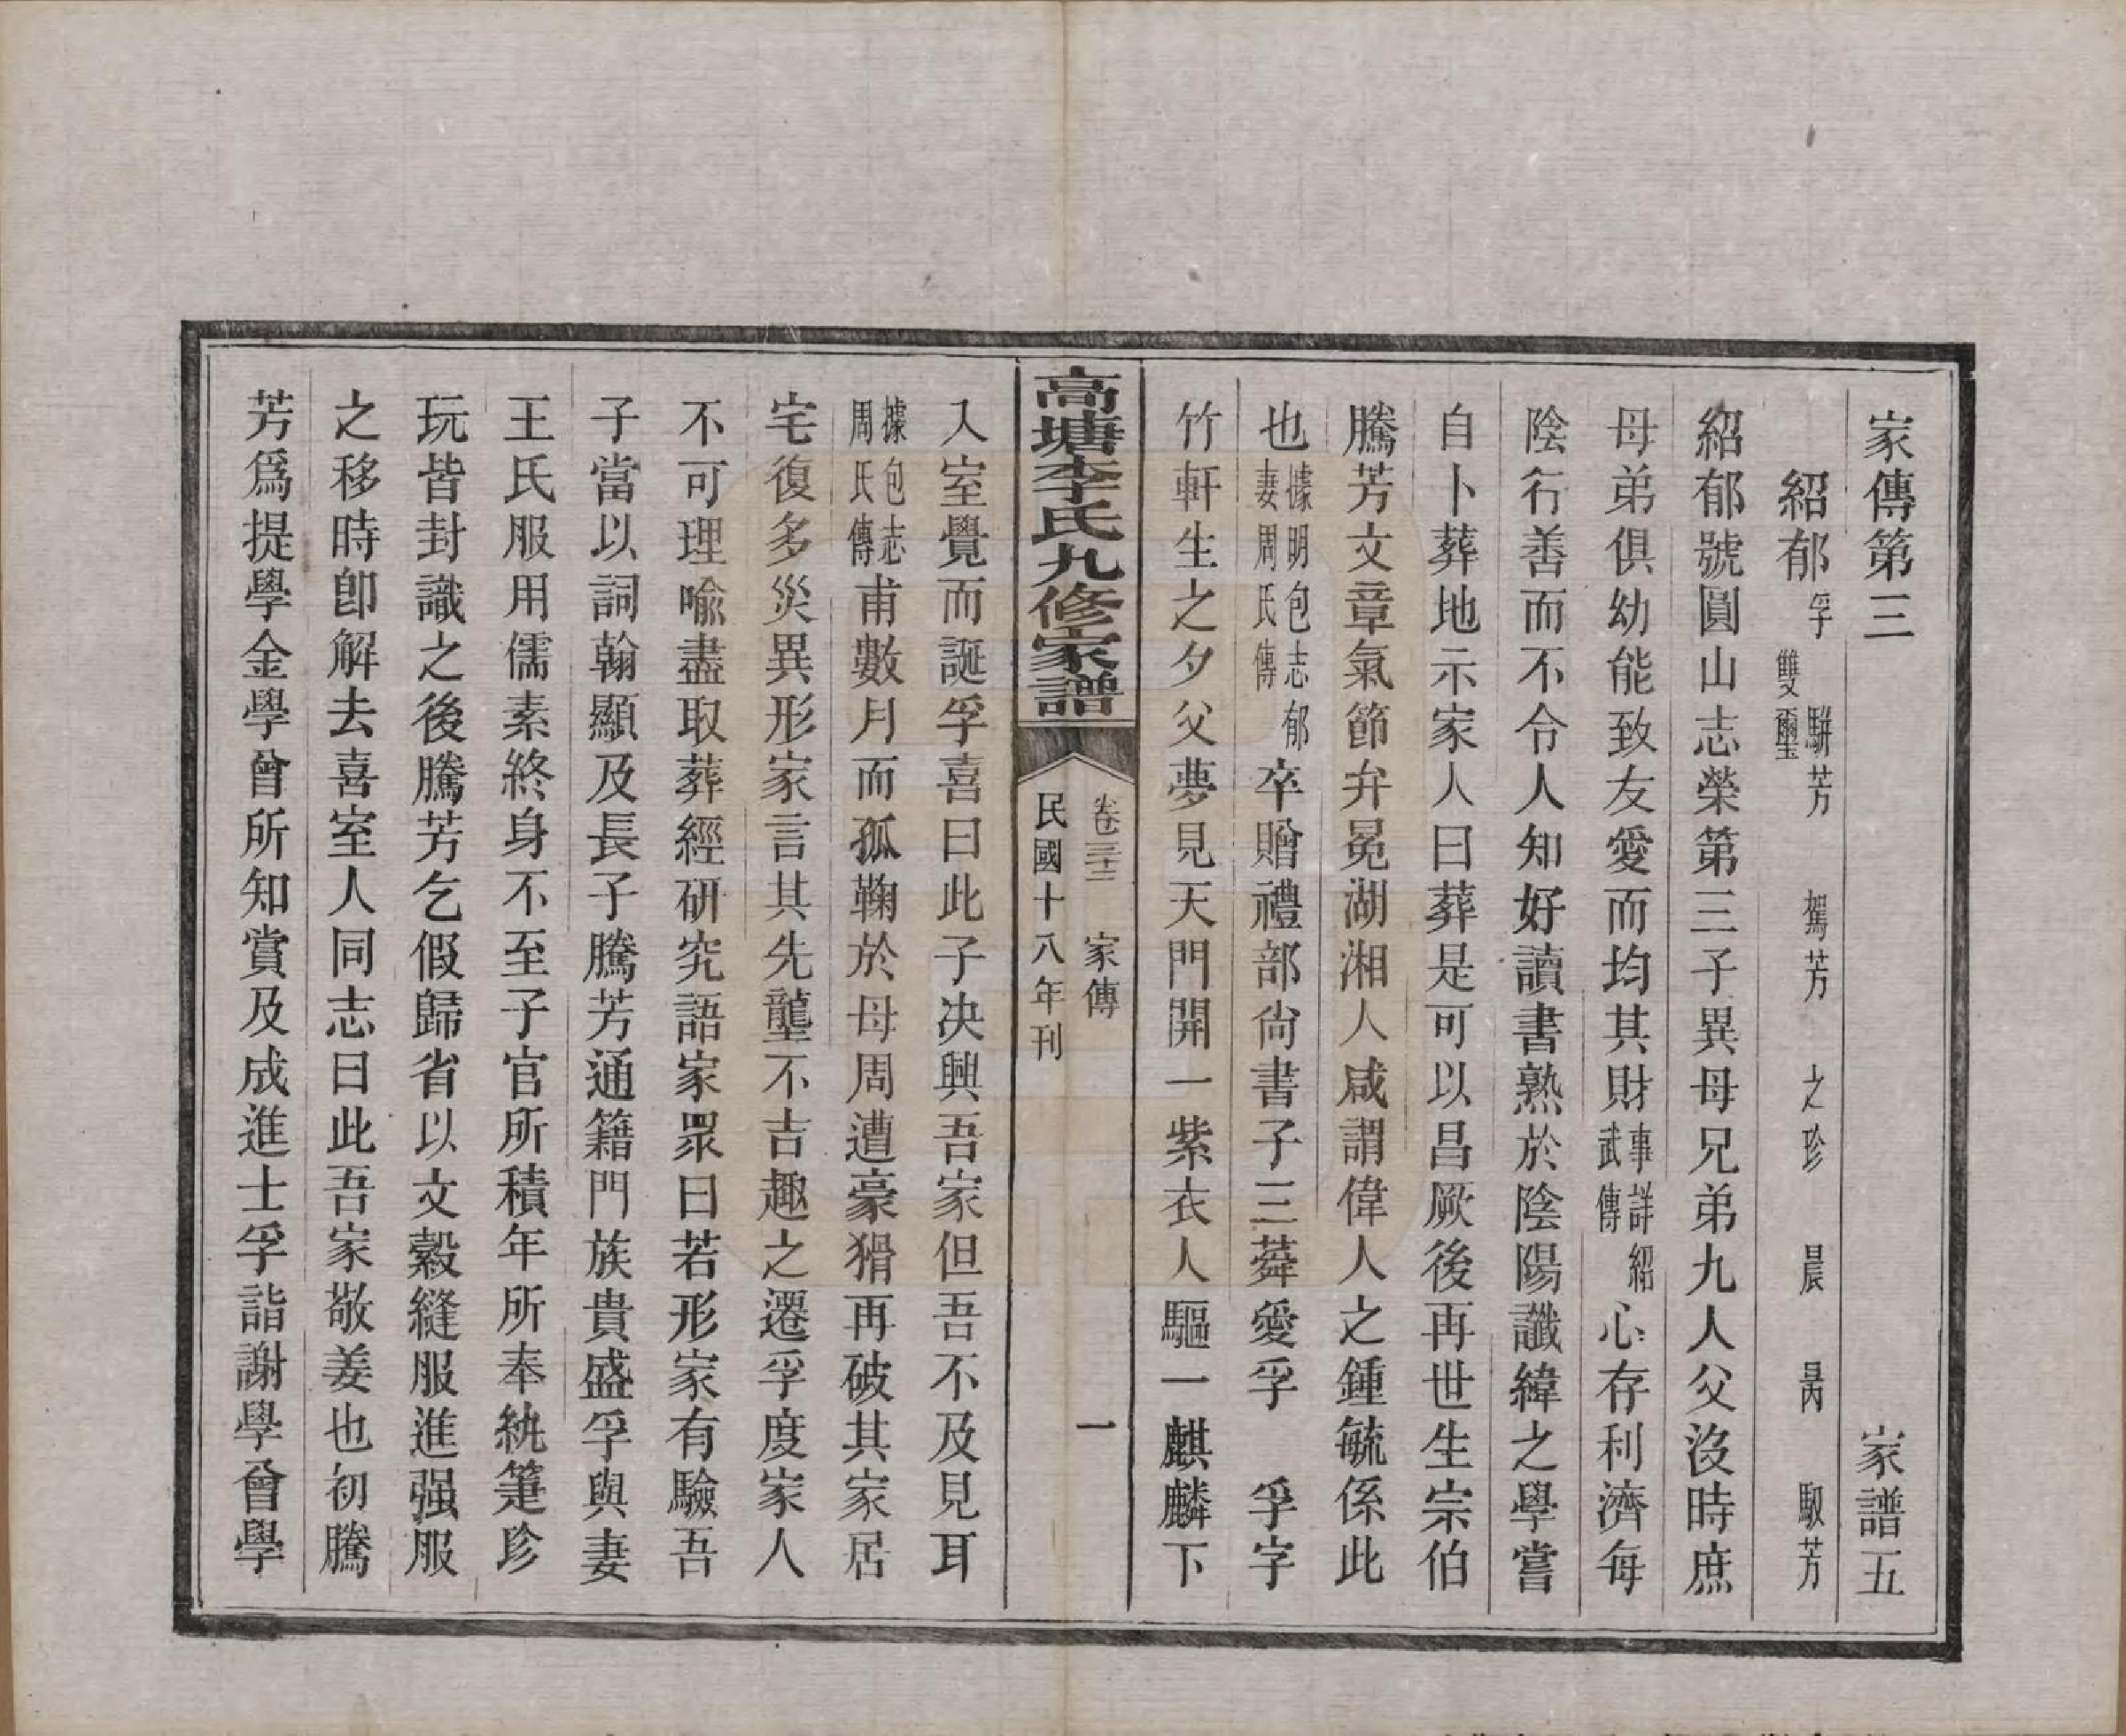 家傳第三　家譜五
紹郁 孚 雙璽 駢芳 駕芳 之珍 晨 昺 馭芳
紹郁號圓山志榮第三子異母兄弟九人父沒時庶
母弟俱幼能致友愛而均其財事詳紹武傳心存利濟每
陰行善而不令人知好讀書熟於陰陽讖緯之學嘗
自卜葬地示家人曰葬是可以昌厥後再世生宗伯
騰芳文章氣節弁冕湖湘人咸謂偉人之鍾毓係此
也據明包志郁妻周氏傳卒贈禮部尙書子三蕣愛孚　孚字
竹軒生之夕父夢見天門開一紫衣人驅一麒麟下
高塘李氏九修家譜
卷三十三　家傳　一
民國十八年刊
入室覺而誕孚喜曰此子決興吾家但吾不及見耳
據包志周氏傳甫數月而孤鞠於母周遭豪猾再破其家居
宅復多災異形家言其先壟不吉趣之遷孚度家人
不可理喻盡取葬經硏究語家眾曰若形家有驗吾
子當以詞翰顯及長子騰芳通籍門族貴盛孚與妻
王氏服用儒素終身不至子官所積年所奉紈箑珍
玩皆封識之後騰芳乞假歸省以文縠縫服進强服
之移時卽解去喜室人同志曰此吾家敬姜也初騰
芳爲提學金學曾所知賞及成進士孚詣謝學曾學